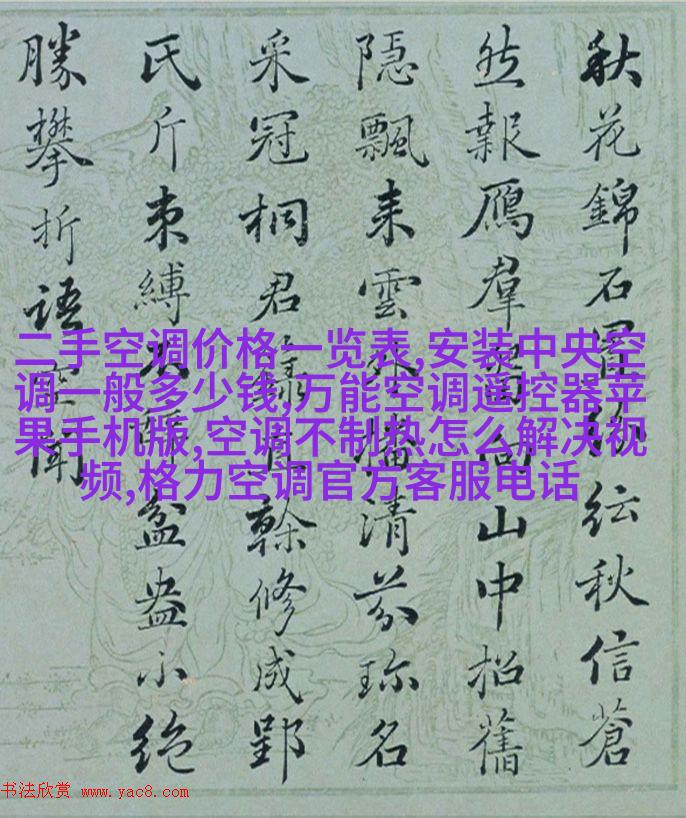 秋花錦石紜秋信蒼
然報鴈羣向山中招舊
隱飄来雲外清芬珎名
采冠桐君榦修成郢
氏斤束縛盆盎小絶
勝攀折語空聞
二手空调价格一览表,安装中央空
调一般多少钱,万能空调遥控器苹
果手机版,空调不制热怎么解决视
频,格力空调官方客服电话
书法欣赏 www.yac8.com